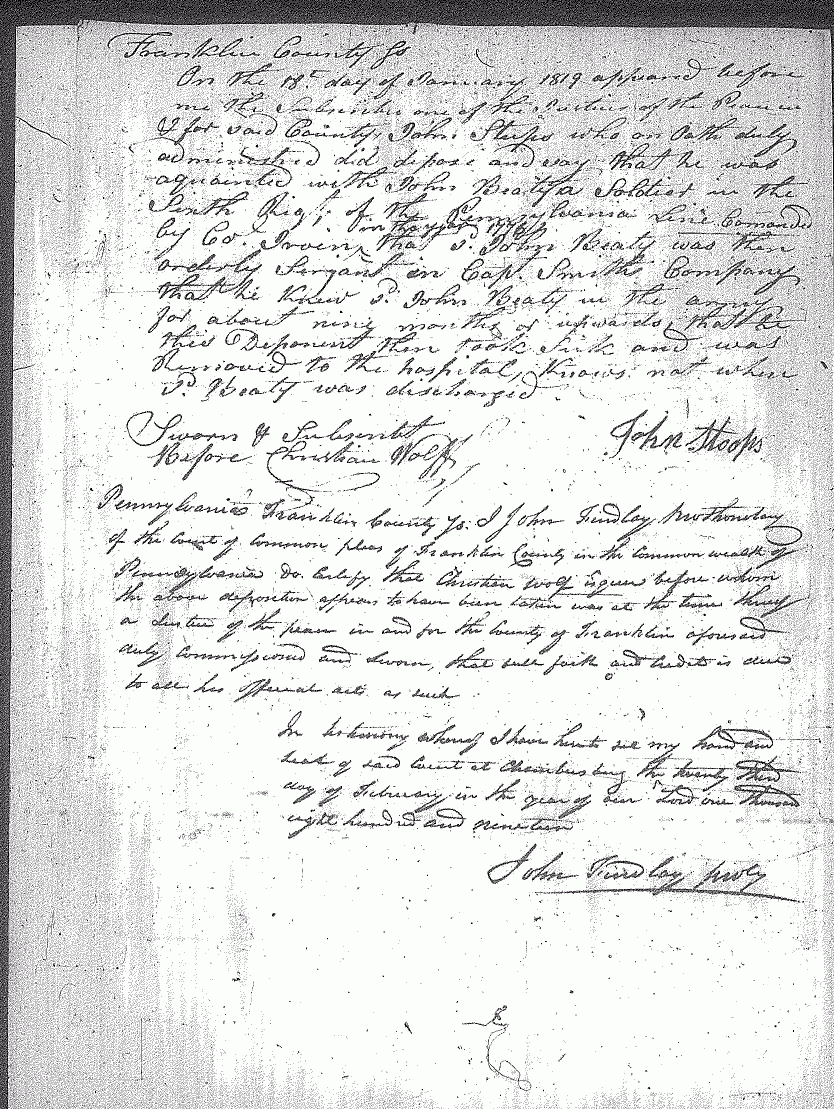 Franklin County Ss
On the 18th day of January 1819 appeared before
me the Subscriber one of the Justices of the Peace in
& for said County, John Stups who on Oath duly
administred did depose and say that he was
aquainted with John Beaty a Soldier in the
Sixth Rigt, of the Pennsylvania Line Comanded
in the year 1776
by Co. Irvin, that Sd. John Beaty was then
orderly Sergant in Cap. Smiths Company
that he knew Sd. John Beaty in the army
for about nine months or upwards, that he
this Deponent then took Sick and was
Removed to the hospital, Knows not when
Sd. Beaty was discharged
Sworn & Subscribt
Before Christian Wolff
John Stoops
Pennsylvania Franklin County Ss. I John Findlay Prothonotary
of the Court of Common pleas of Franklin County in the Common wealth of
Pennsylvania do Certify that Christian Wolf Esquire before whom
the above deposition appears to have been taken was at the time thereof
a Justice of the peace in and for the County of Franklin aforesaid
duly commissioned and Sworn, that full faith and Credit is due
to all his official acts as such
In testimony whereof I have hereto set my hand and
seal of said Court at Chambersburg the twenty third
day of February in the year of our Lord one thousand
eight hundred and nineteen
John Findlay proty